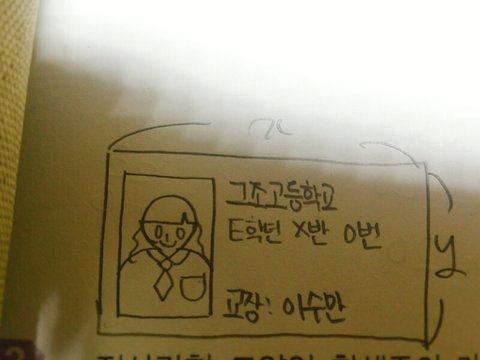 x
그조고등학교
E학년 X반 0번
y
교장: 이수만